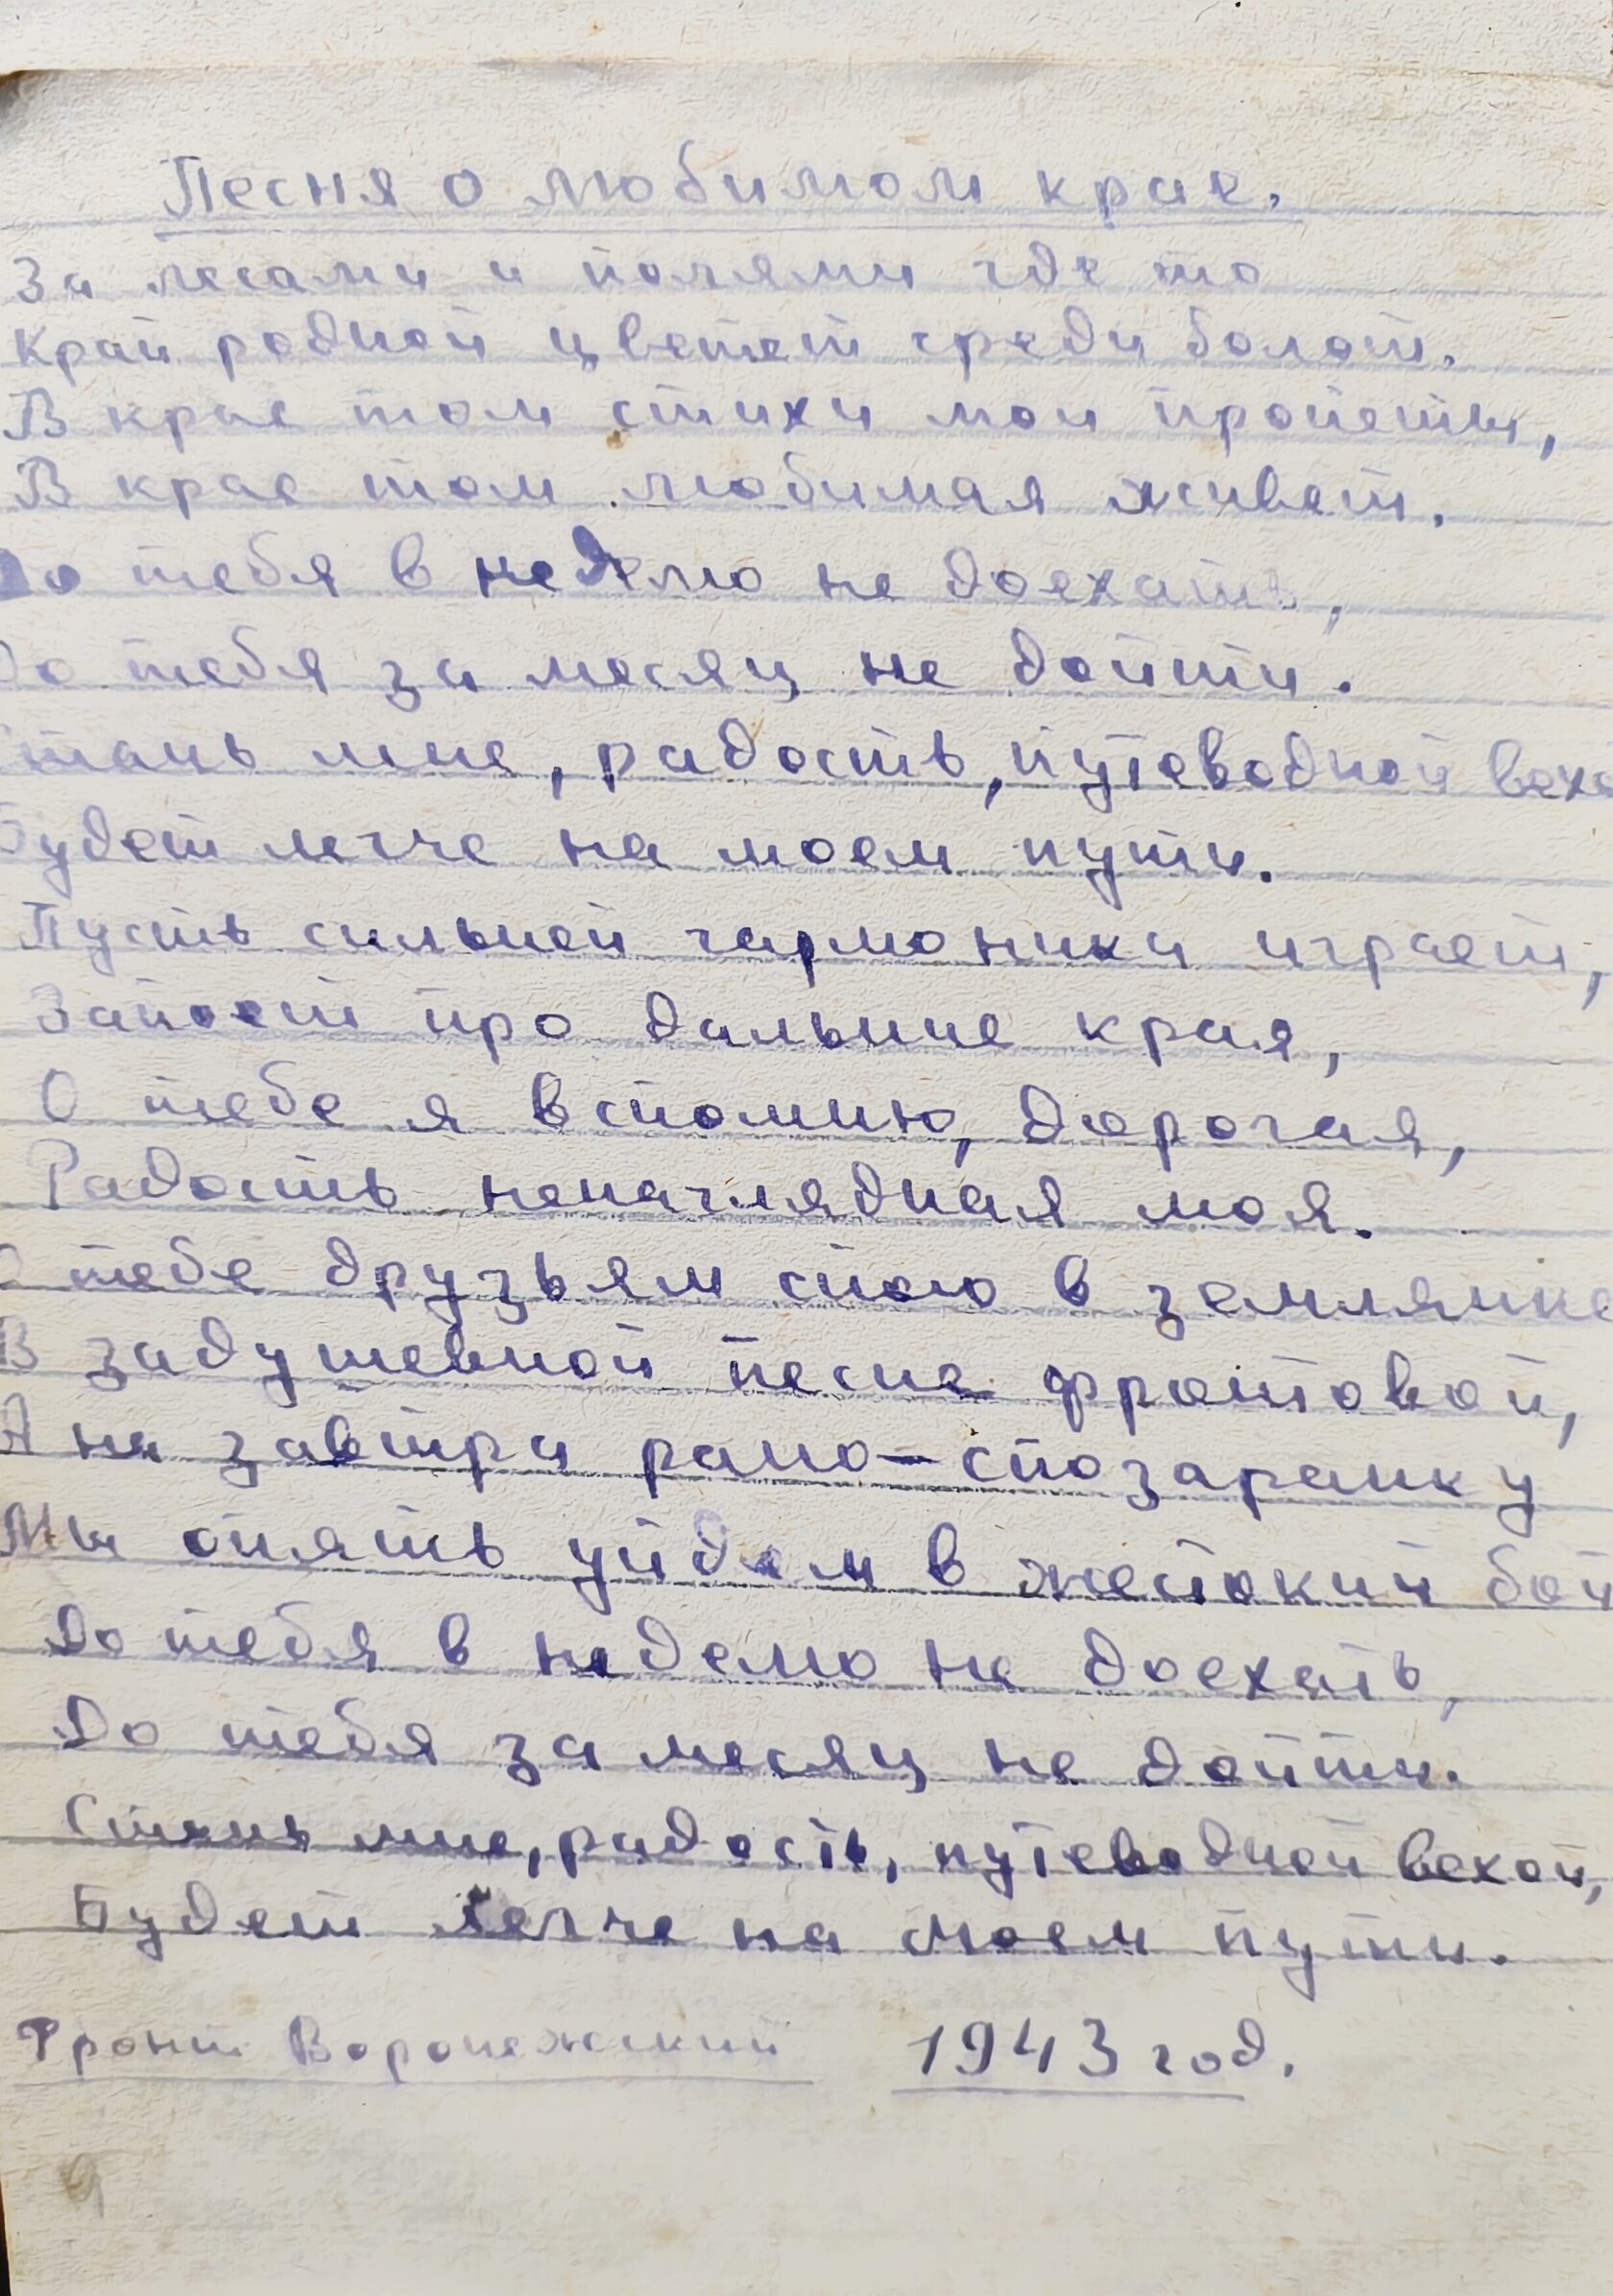 Песня о любимом крае.
За лесами и полями где то
Край родной цветет среди болот.
В крае том стихи мои пропеты,
В крае том любимая живет.
До тебя в неделю не доехать,
До тебя за месяц не дойти.
Стань мне, радость, путеводной вехо
Будет легче на моем пути.
Пусть сильней гармоника играет,
Запоет про дальние края,
О тебе я вспомню, дорогая,
Радость ненаглядная моя.
О тебе друзьям спою в землянке
В задушевной песне фронтовой,
А на завтра рано-спозаранку
Мы опять уйдем в жестокий бой
До тебя в неделю не доехать,
До тебя за месяц не дойти.
Стань мне, радость, путеводной вехой,
Будет легче на моем пути.
Фронт Воронежский 1943 год.
9